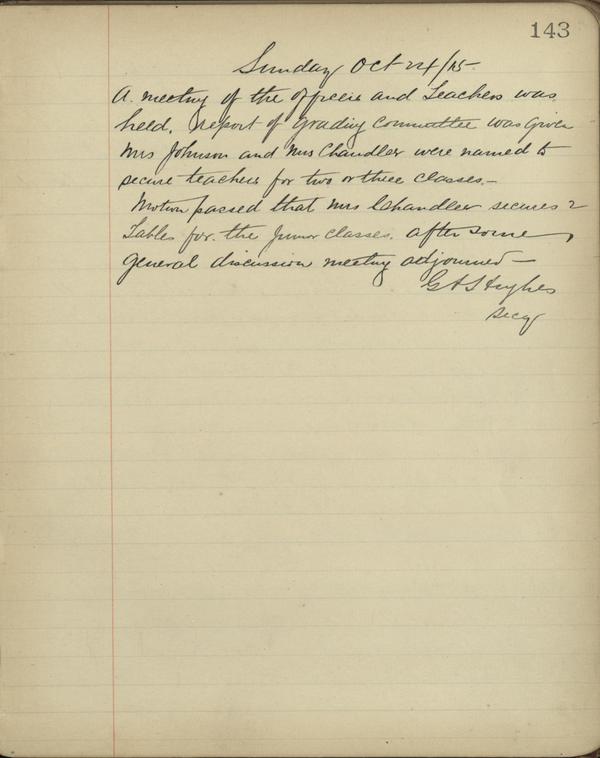 143
Sunday Oct 24/15-
A meeting of the officers and Teachers was
held. Report of Grading Committee was given
Mrs Johnson and Mrs Chandler were named to
secure teachers for two or three classes.-
Motion passed that Mrs Chandler secures 2
Tables for the Junior classes. after some
general discussion meeting adjourned-
Hughes
Secy